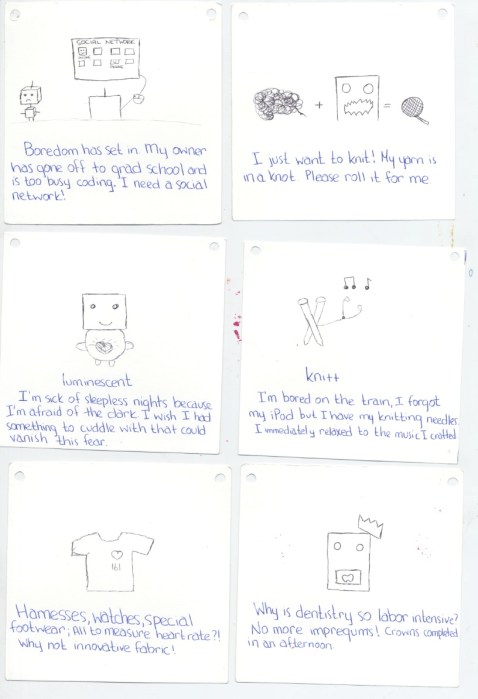 SOCIAL NETWORK
Boredom has set in. My owner
has gone off to grad school and
is too busy coding. I need a social
network!
+ =
I just want to knit! My yarn is
in a knot. Please roll it for me
luminescent
I'm sick of sleepless nights because
I'm afraid of the dark. I wish I had
something to cuddle with that could
vanish this fear.
knitt
I'm bored on the train, I forgot
my iPod but I have my knitting needles
I immediately relaxed to the music I crafted
Harnesses, watches, special
footwear; All to measure heart rate?!
Why not innovative fabric!
Why is dentistry so labor intensive?
No more impregums! Crowns completed
in an afternoon